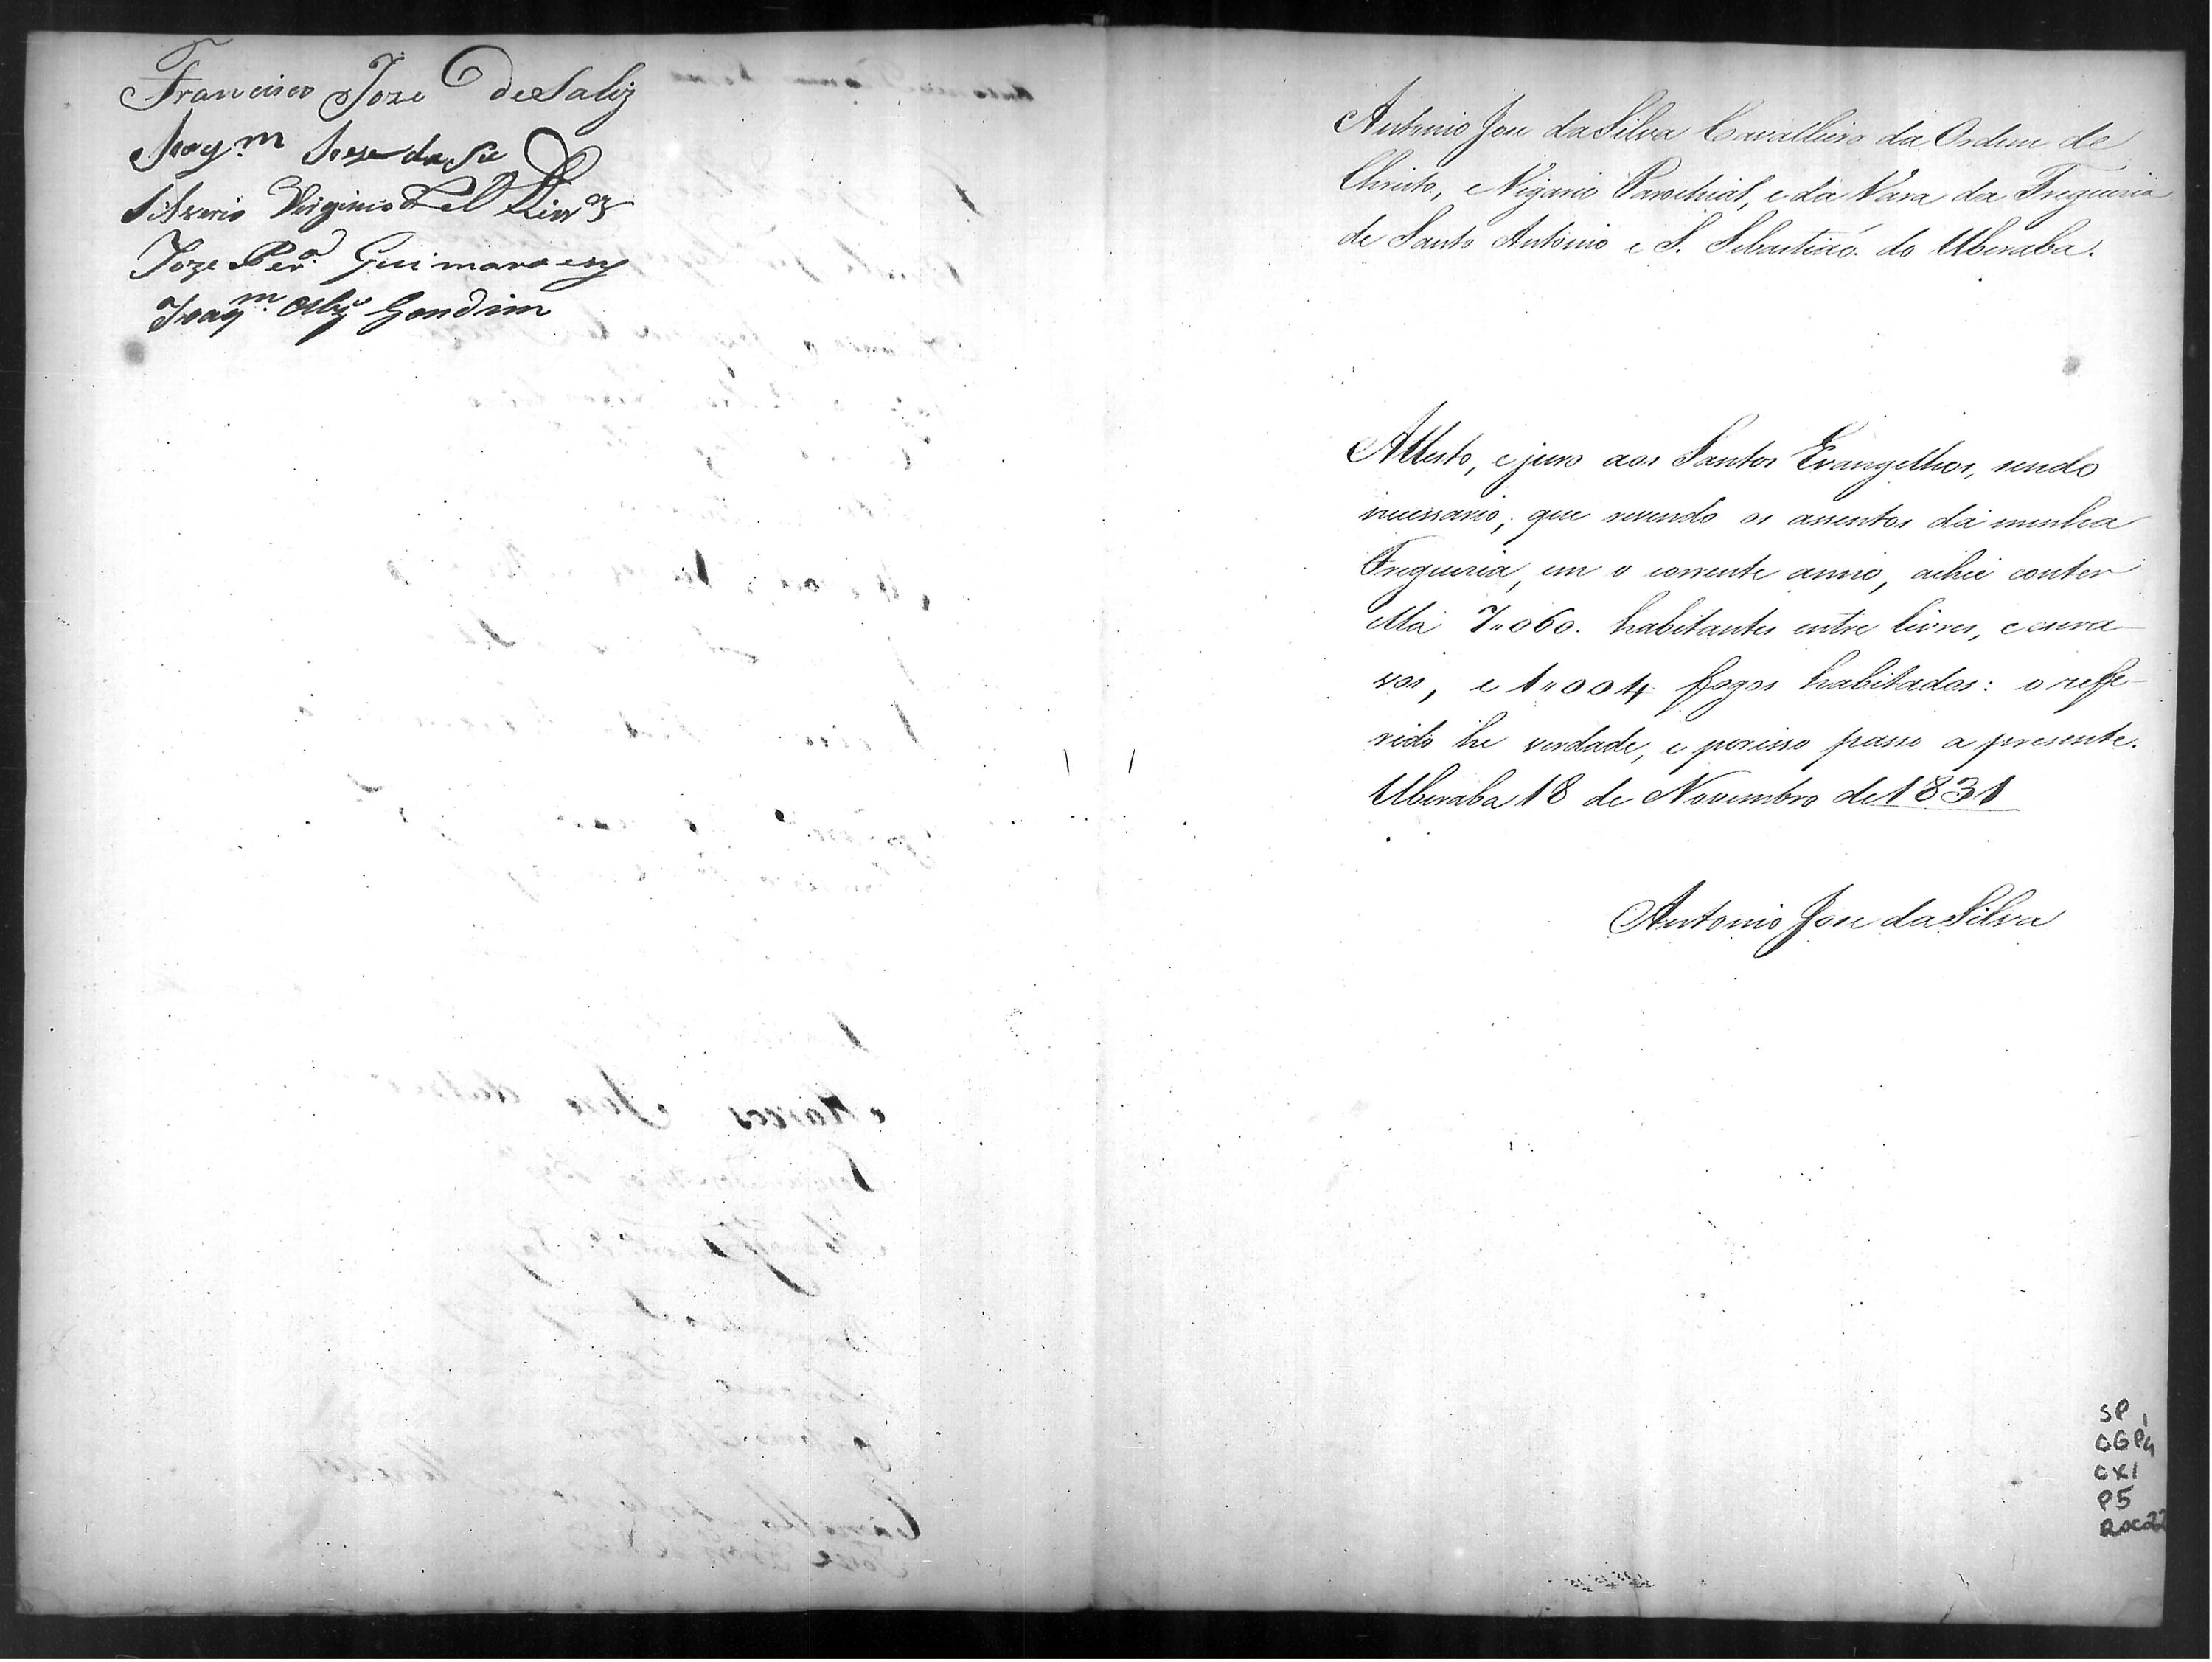 Francisco Joze de Saliz
Joaqm Joze da Sa
Silverio Virginio
Joze Pera Guimaraens
Joaqm Gondim
Antonio Joze da Silva Cavalleiro da Ordem de
Christo, e Vigario Parochial, e da Vara da Freguezia
de Santo Antonio e S. Sebastião do Uberaba.
Attesto, e juro aos Santos Evangelhos, sendo
necessario, que revendo os assentos da minha
Freguezia, em o corrente anno, achei conter
ella 7"060. habitantes entre livres, e escra-
vos, e 1"004 fogos habitados: o refe-
rido he verdade, e por isso passo a presente.
Uberaba 18 de Novembro de 1831
Antonio Joze da Silva
SP 1
CGP4
CX1
P5
Doc22